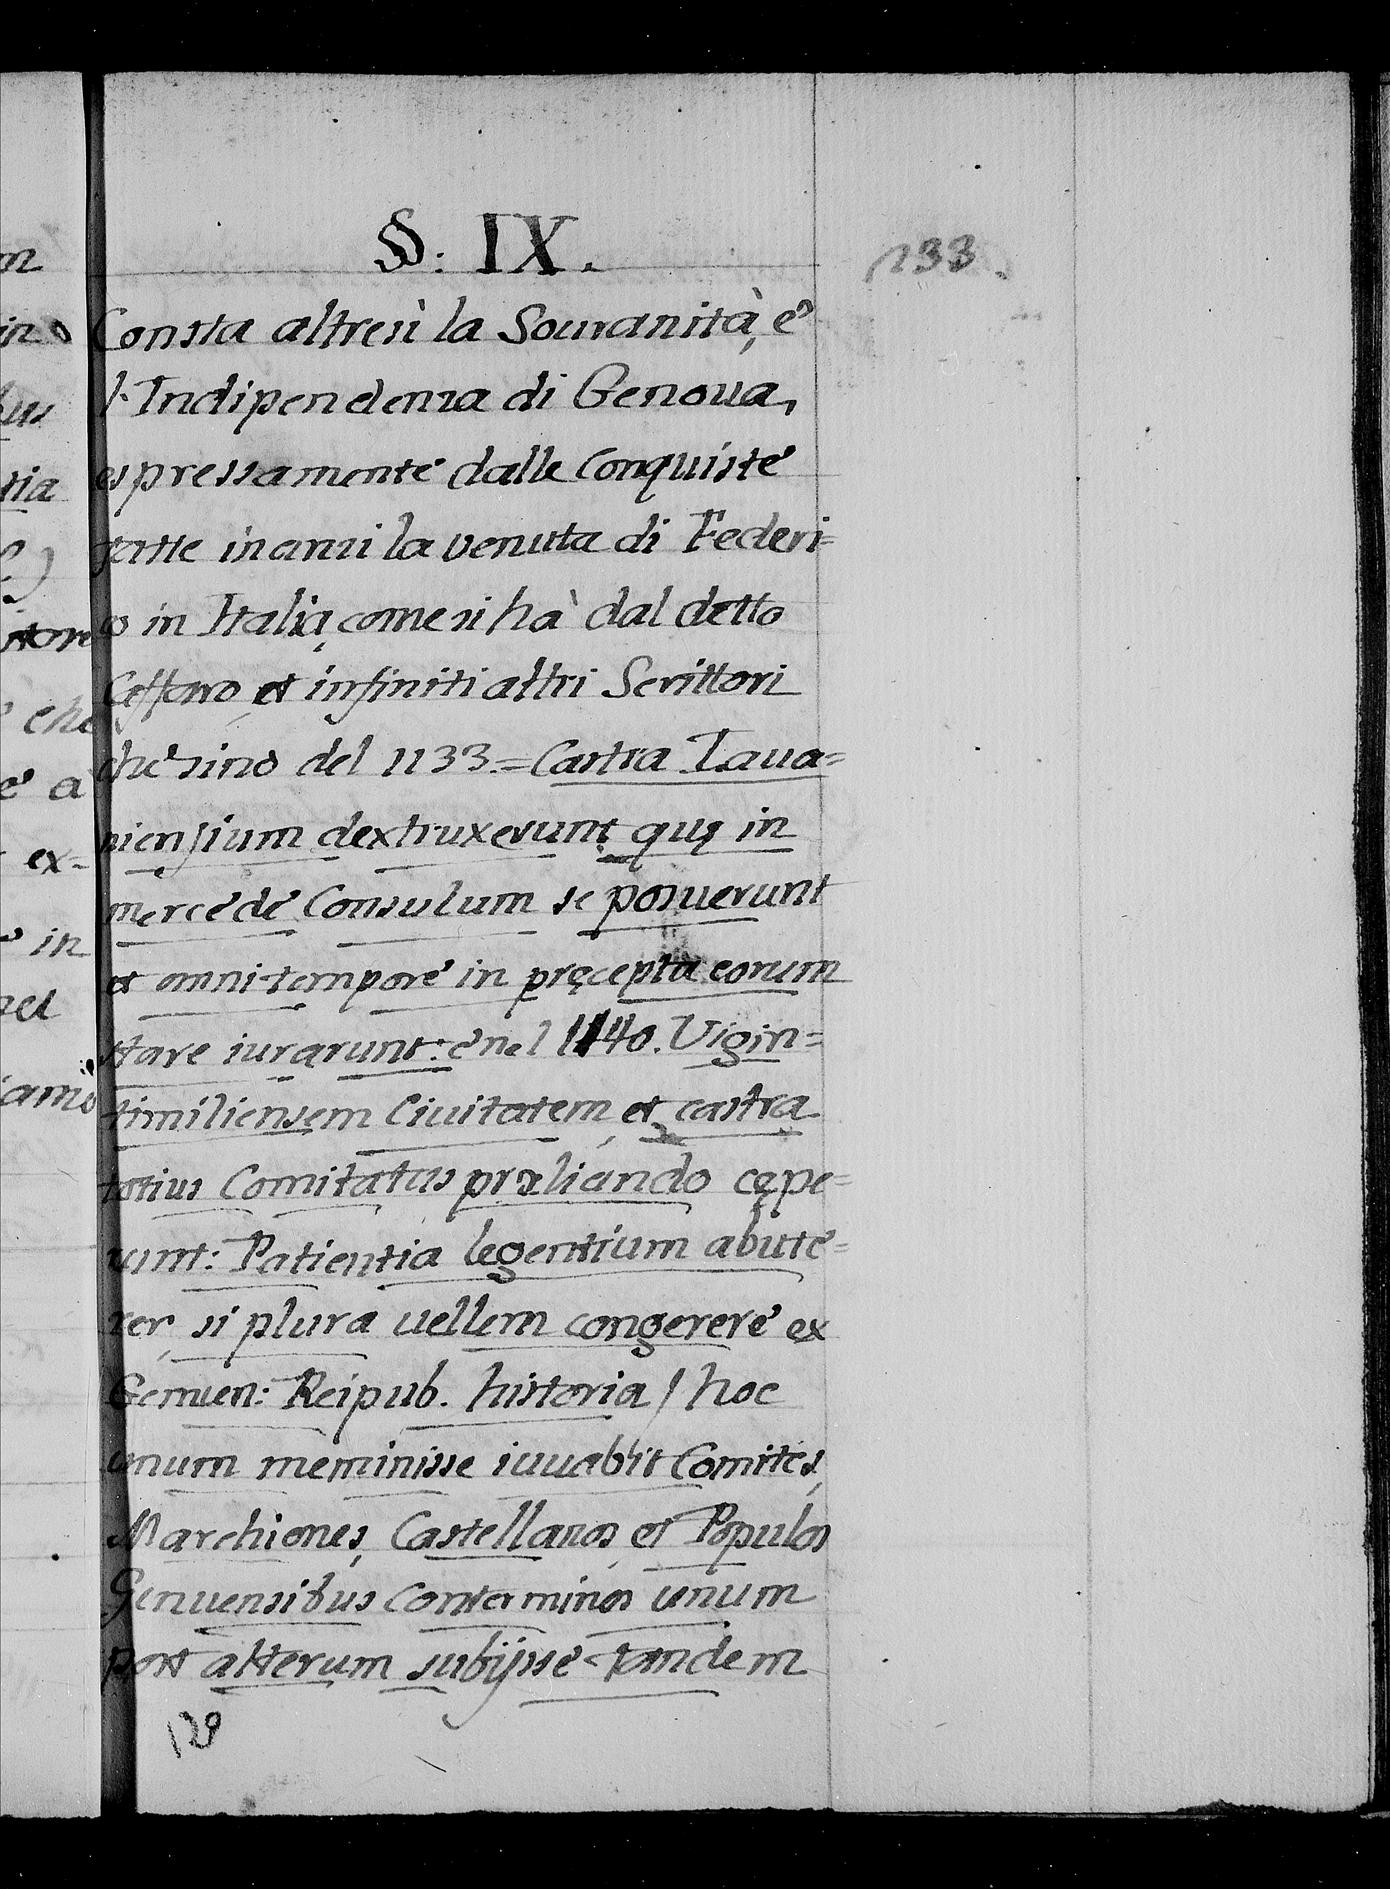 §: IX.
133.
Consta altresì la Souranità, e
l'Indipendenza di Genoua,
espressamente dalle Conquiste
fatte inanzi la venuta di Federi=
co in Italia, come si hà dal detto
Caffaro, et infiniti altri Scrittori
che sino del 1133.=Castra Laua=
niensium dextruxerunt quę in
mercede Consulum se posuerunt
et omni tempore in pręcepta eorum
stare iurarunt: e nel 1140. Vigin=
timiliensem Ciuitatem, et castra
totius Comitatus præliando cępe=
runt: Patientia legentium abute=
rer, si plura uellem congerere ex
Genuen: Reipub. historia / hoc
unum meminisse iuuabit Comites,
Marchiones, Castellanos, et Populos
Genuensibus conterminos unum
post alterum subijsse tandem
129